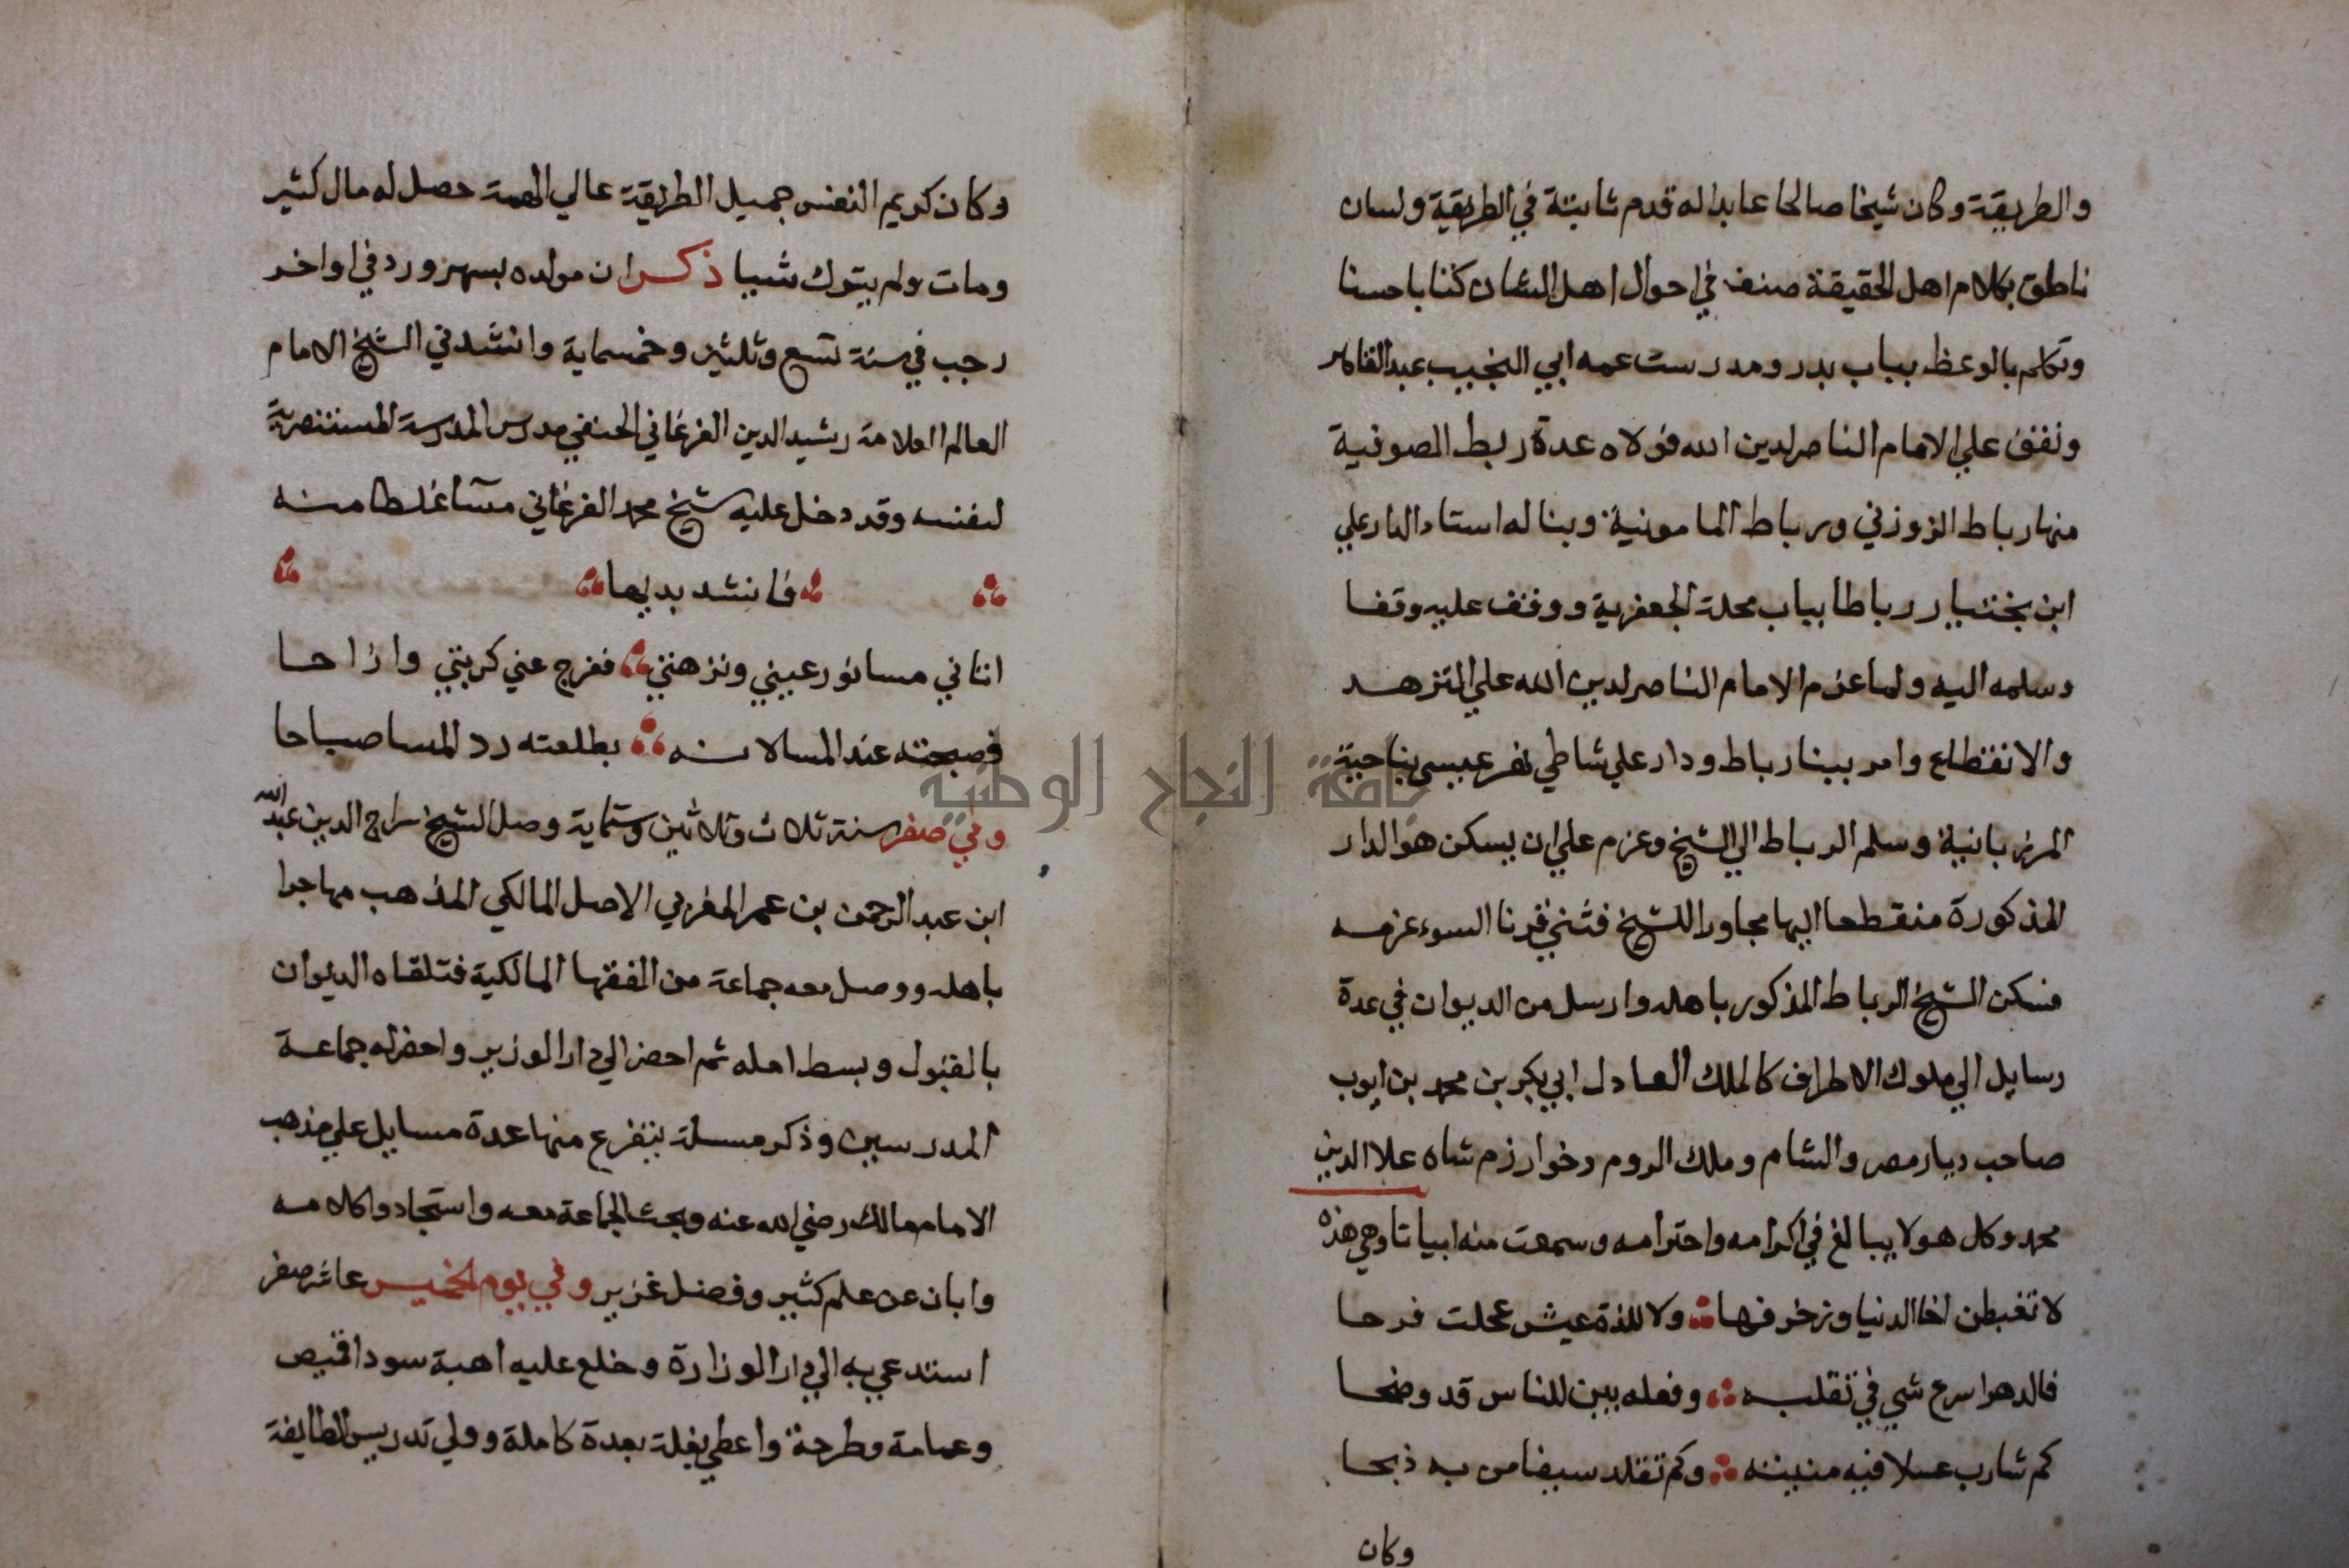 والطريقة وكان شيخا صالحا عابدا له قدم ثابتة في الطريقة ولسان
ناطق بكلام اهل الحقيقة صنف في احوال اهل الشان كتابا حسنا
وتكلم بالوعظ بباب بدر ومدرست عمه ابي النجيب عبد القاهر
ونفق علي الامام الناصر لدين الله فولاه عدة ربط الصوفية
منها رباط الزوزني ورباط المامونية وبنا له استاد الدار علي
ابن بختيار رباطا بباب محلة الجعفرية ووقف عليه وقفا
وسلمه اليه ولما عزم الامام الناصر لدين الله علي التزهد
والانقطاع وامر ببنا رباط ودار علي شاطي نهر عيسى بناحية
المرزبانية وسلم الرباط الي الشيخ وعزم علي ان يسكن هو الدار
المذكورة منقطعا اليها مجاورا للشيخ فثني قرنا السوء عزمه
فسكن الشيخ الرباط المذكور باهله وارسل من الديوان في عدة
رسايل الي ملوك الاطراف كالملك العادل ابي بكر بن محمد بن ايوب
صاحب ديار مصر والشام وملك الروم وخوارزم شاه علا الدين
محمد وكل هولا يبالغ في اكرامه واحترامه وسمعت منه ابياتا وهي هذه
لا تغبطن اخا الدنيا وزخرفها ولا للذة عيش عجلت فرحا
فالدهر اسرع شي في تقلبه وفعله بين للناس قد وضحا
كم شارب عسلا فيه منيته وكم تقلد سيفا من به ذبحا
وكان
وكان كريم النفس جميل الطريقة عالي الهمة حصل له مال كثير
ومات ولم يترك شيا ذكر ان مولده بسهرورد في اواخر
رجب في سنة تسع وثلثين وخمسماية وانشدني الشيخ الامام
العالم العلامة رشيد الدين الفرغاني الحنفي مدرس المدرسة المستنصرية
لنفسه وقد دخل عليه شيخ محمد الفرغاني مسآ غلطا منه
فانشد بديها
اتاني مسا نور عيني ونزهتي ففرج عني كربتي وازاحا
فصبحته عند المسا لانه بطلعته رد المسا صباحا
وفي صفر سنة ثلاث وثلاثين وستماية وصل الشيخ سراج الدين عبد الله
ابن عبد الرحمن بن عمر المغربي الاصل المالكي المذهب مهاجرا
باهله ووصل معه جماعة من الفقها المالكية فتلقاه الديوان
بالقبول وبسط امله ثم احضر الي دار الوزير واحضر له جماعة
المدرسين وذكر مسلة يتفرع منها عدة مسايل علي مذهب
الامام مالك رضي الله عنه وبحث الجماعة معه واستجادوا كلامه
وابان عن علم كثير وفضل غزير وفي يوم الخميس عاشر صفر
استدعي به الي دار الوزارة وخلع عليه اهبة سودا قميص
وعمامة وطرحة واعطي بغلة بعدة كاملة وولي تدريس الطايفة
جامعة النجاح الوطنية